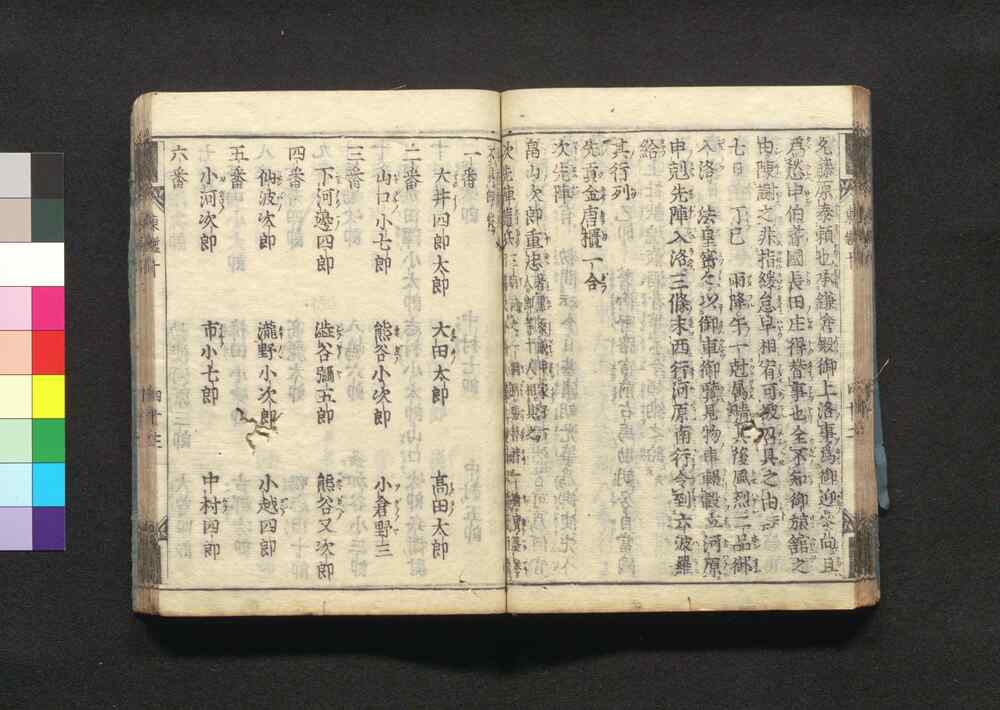 先藤原泰頼也承鎌倉殿御上洛事為御迎参向且
為愁申伯耆國長田庄得替事也全不知御旅舘之
由陳謝之非指緩怠早相宥可被召具之由云々
七日 丁巳 雨降午一尅属晴其後風烈二品御
入洛 法皇密々以御車御覽見物車輾轂立河原
申剋先陣入洛三條末西行河原南行令到六波羅
給
其行列
先貢金唐櫃一合
次先陣
畠山次郎重忠
次先陣随兵
一番
大井四郎太郎 大田太郎 髙田太郎
二番
山口小七郎 熊谷小次郎 小倉野三
三番
下河邊四郎 澁谷彌五郎 熊谷又次郎
四番
仙波次郎 瀧野小次郎 小越四郎
五番
小河次郎 市小七郎 中村四郎
六番